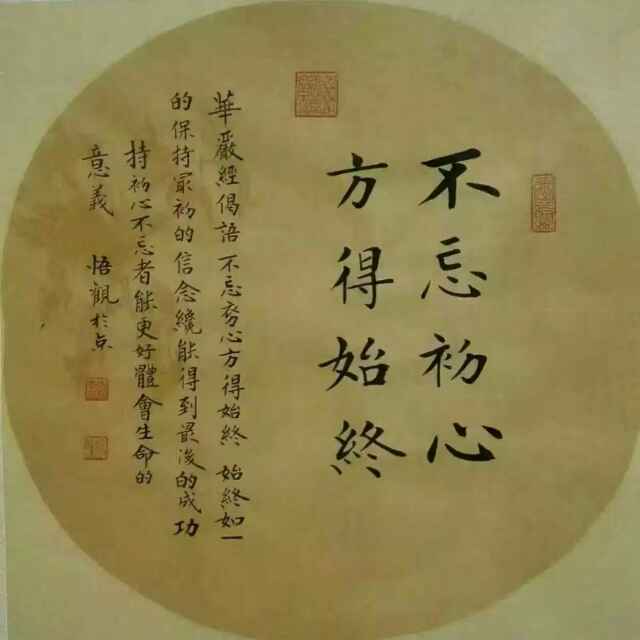 不忘初心
方得始終
華嚴經偈語不忘初心方得始終始終如一
的保持最初的信念纔能得到最後的成功
持初心不忘者能更好體會生命的
意義 悟觀於京